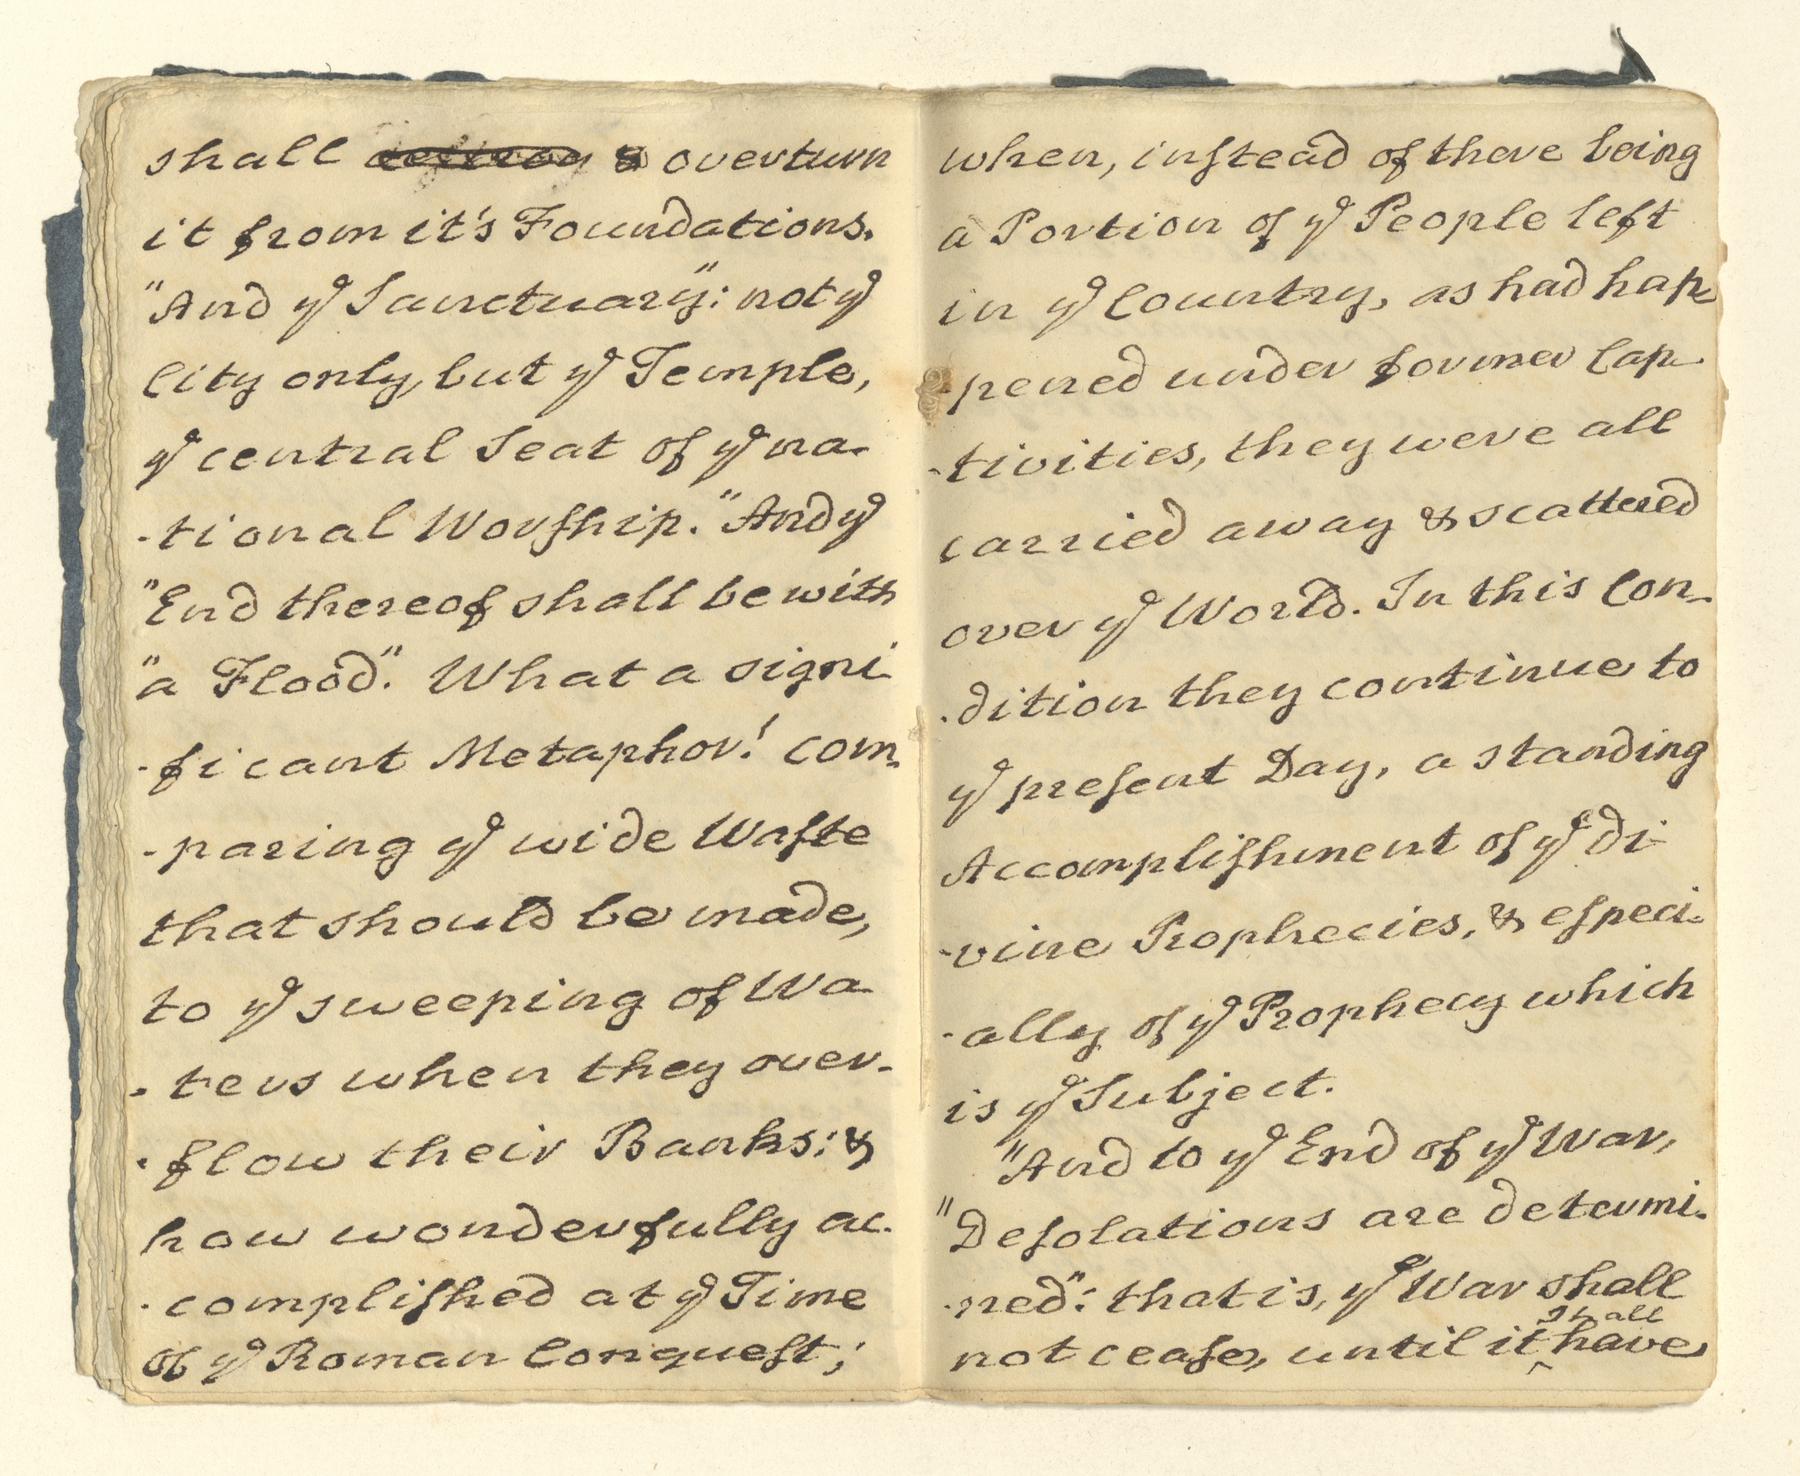 shall destroy & overturn
it from it's Foundations.
"And yᵉ Sanctuary": not yᵉ
City only, but yᵉ Temple,
yᵉ central Seat of yᵉ na-
-tional Worſhip. "And yᵉ
"End thereof shall be with
"a Flood". What a signi-
-ficant Metaphor! com-
-paring yᵉ wide Waſte
that should be made,
to yᵉ sweeping of Wa-
-ters when they over-
-flow their Banks: &
how wonderfully ac-
-compliſhed at yᵉ Time
of yᵉ Roman Conqueſt;
when, inſtead of there being
a Portion of yᵉ People left
in yᵉ Country, as had hap-
-pened under former Cap-
-tivities, they were all
carried away & scattered
over yᵉ World. In this Con-
-dition they continue to
yᵉ preſent Day, a standing
Accompliſhment of yᵉ di-
-vine Prophecies, & eſpeci-
-ally of yᵉ Prophecy which
is yᵉ Subject.
"And to yᵉ End of yᵉ War,
"Deſolations are determi-
-ned": that is, yᵉ War shall
not ceaſe, until it shall have